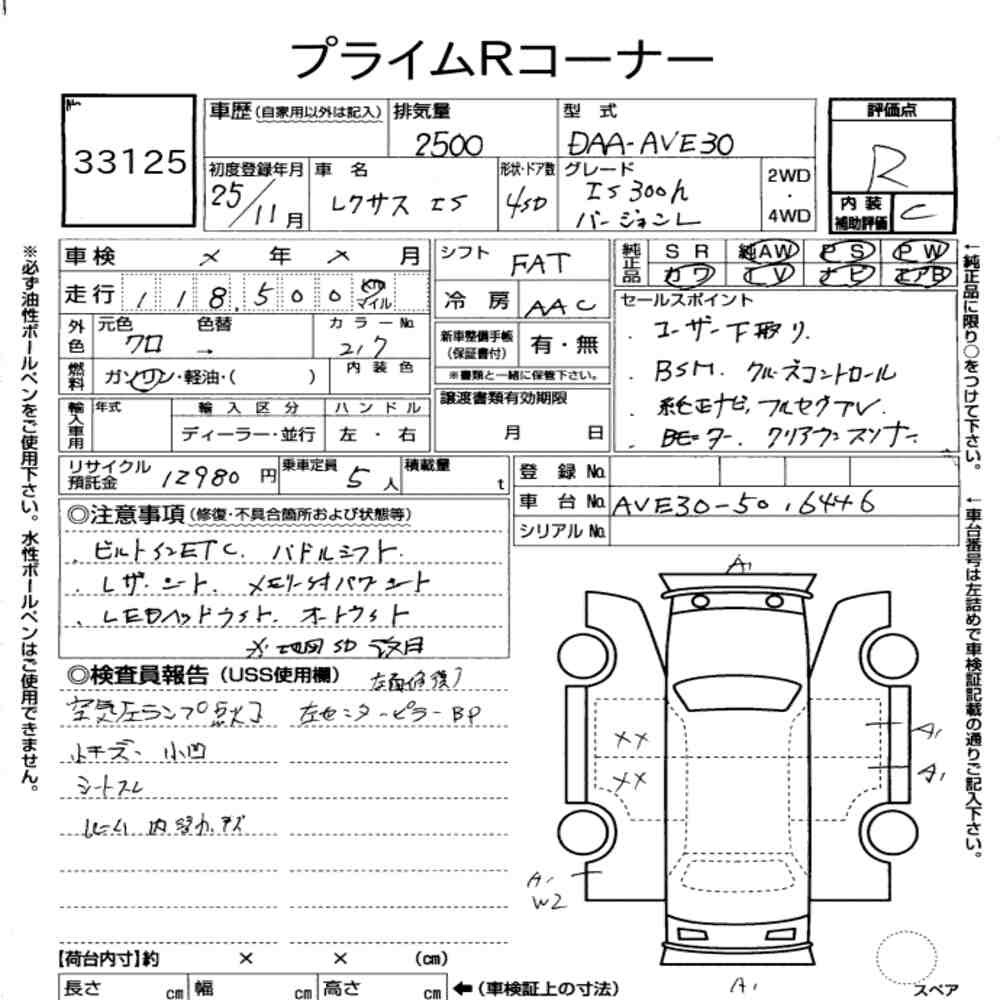 プライムRコーナー
No.
33125
車歴 (自家用以外は記入) 排気量 2500
型 式 DAA-AVE30
評価点 R
内 装 補助評価 C
初度登録年月 25/11月
車 名 レクサス IS
形状・ドア数 4SD
グレード IS300h バージョンL
2WD ・ 4WD
車検 × 年 × 月
走行 118,500 km マイル
シフト FAT
冷 房 AAC
純正品 SR 純AW PS PW
カワ TV ナビ エアB
外色 元色 クロ 色替 → カラーNo. 217
燃料 ガソリン・軽油・( ) 内 装 色
輸入車用 年式 輸 入 区 分 ハ ン ド ル
ディーラー・並行 左 ・ 右
新車整備手帳 (保証書付) 有・無
※書類と一緒に保管下さい。
譲渡書類有効期限
月 日
セールスポイント
・ユーザー下取り.
・BSM. クルーズコントロール
・純正ナビ, フルセグTV.
リサイクル預託金 12980 円 乗車定員 5 人 積載量 t
登 録 No.
車 台 No. AVE30-50.16446
シリアル No.
◎注意事項 (修復・不具合箇所および状態等)
・ビルトインETC. パドルシフト.
・レザーシート. メモリー付パワーシート
・LEDヘッドライト. オートライト
※地図SD 欠品
◎検査員報告 (USS使用欄) 左面修復了
空気圧ランプ点灯 左センターピラーBP
小キズ・小凹
シートスレ
ルーム内
A1
××
××
A1
A1
A1
W2
A1
【荷台内寸】約 × × (cm)
長さ cm 幅 cm 高さ cm ←(車検証上の寸法)
スペア
※必ず油性ボールペンをご使用下さい。水性ボールペンはご使用できません。
←純正品に限り○をつけて下さい。
←車台番号は左詰めで車検証記載の通りご記入下さい。